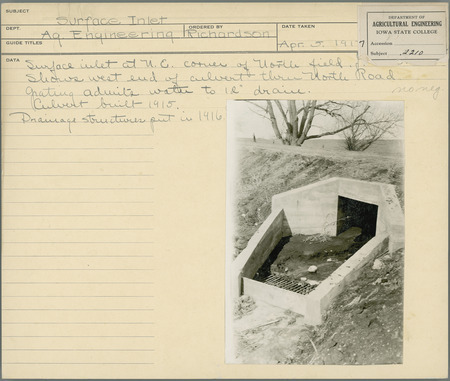 SUBJECT
Surface Inlet
DEPT. Ag Engineering ORDERED BY Richardson DATE TAKEN Apr. 5, 1917
GUIDE TITLES
DEPARTMENT OF
AGRICULTURAL ENGINEERING
IOWA STATE COLLEGE
Accession
Subject 2210
DATA Surface inlet at N.E. corner of North field.
Shows west end of culvert thru North Road
Grating admits water to 12" drain.
no neg
Culvert built 1915.
Drainage structures put in 1916.